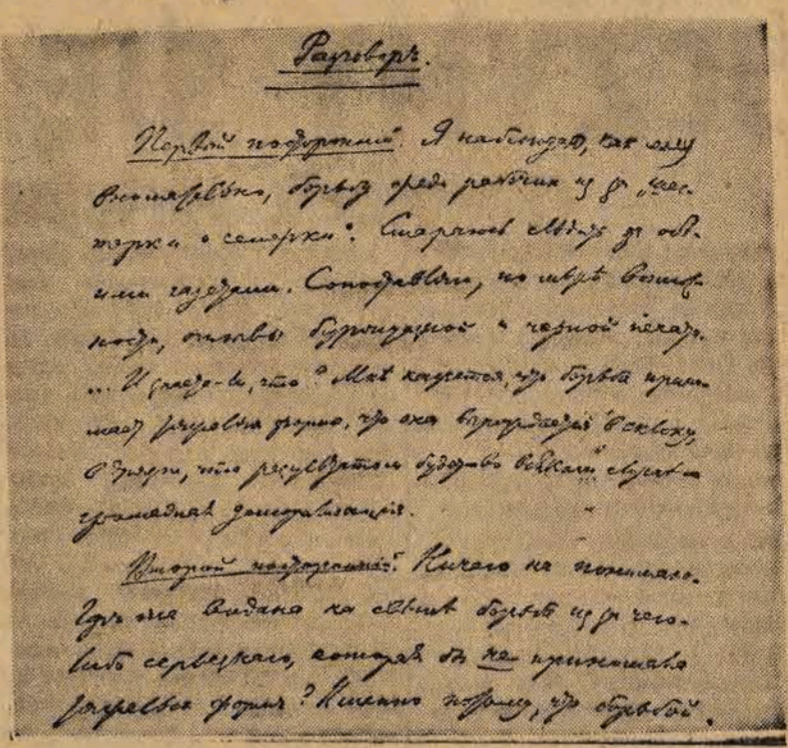 Разговоръ.
Первый посторонній. Я наблюдаю, какъ могу
внимательно, борьбу среди рабочихъ из за „шес-
терки и семерки“. Стараюсь слѣдить за обѣ-
ими газетами. Сопоставляю, по мѣрѣ возмож-
ности, отзывы буржуазной и черной печати.
... И знаете-ли, что? Мнѣ кажется, что борьба прини-
маетъ тяжелыя формы, что она вырождается въ склоку,
въ дрязги, что результатомъ будетъ во всякомъ случаѣ
громадная деморализація.
Второй посторонній. Ничего не понимаю.
Гдѣ же видана на свѣтѣ борьба из за чего-
либо серьезнаго, которая бы не принимала
тяжелыхъ формъ? Именно потому, что борьбой